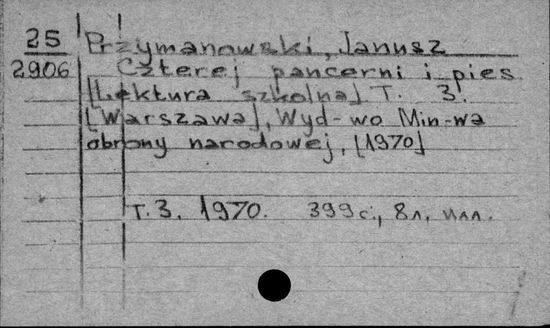 25 Przymanowski, Janusz
2906 Czterej pancerni i pies
[Lektura szkolna] T. 3.
[Warszawa], Wyd-wo Min-wa
obrony narodowej, [1970]
T. 3. 1970. 399 с., 8 л. илл.